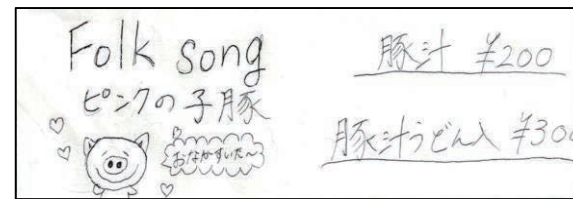 Folk song
ピンクの子豚
おなかすいた〜
豚汁 ¥200
豚汁うどん入 ¥300